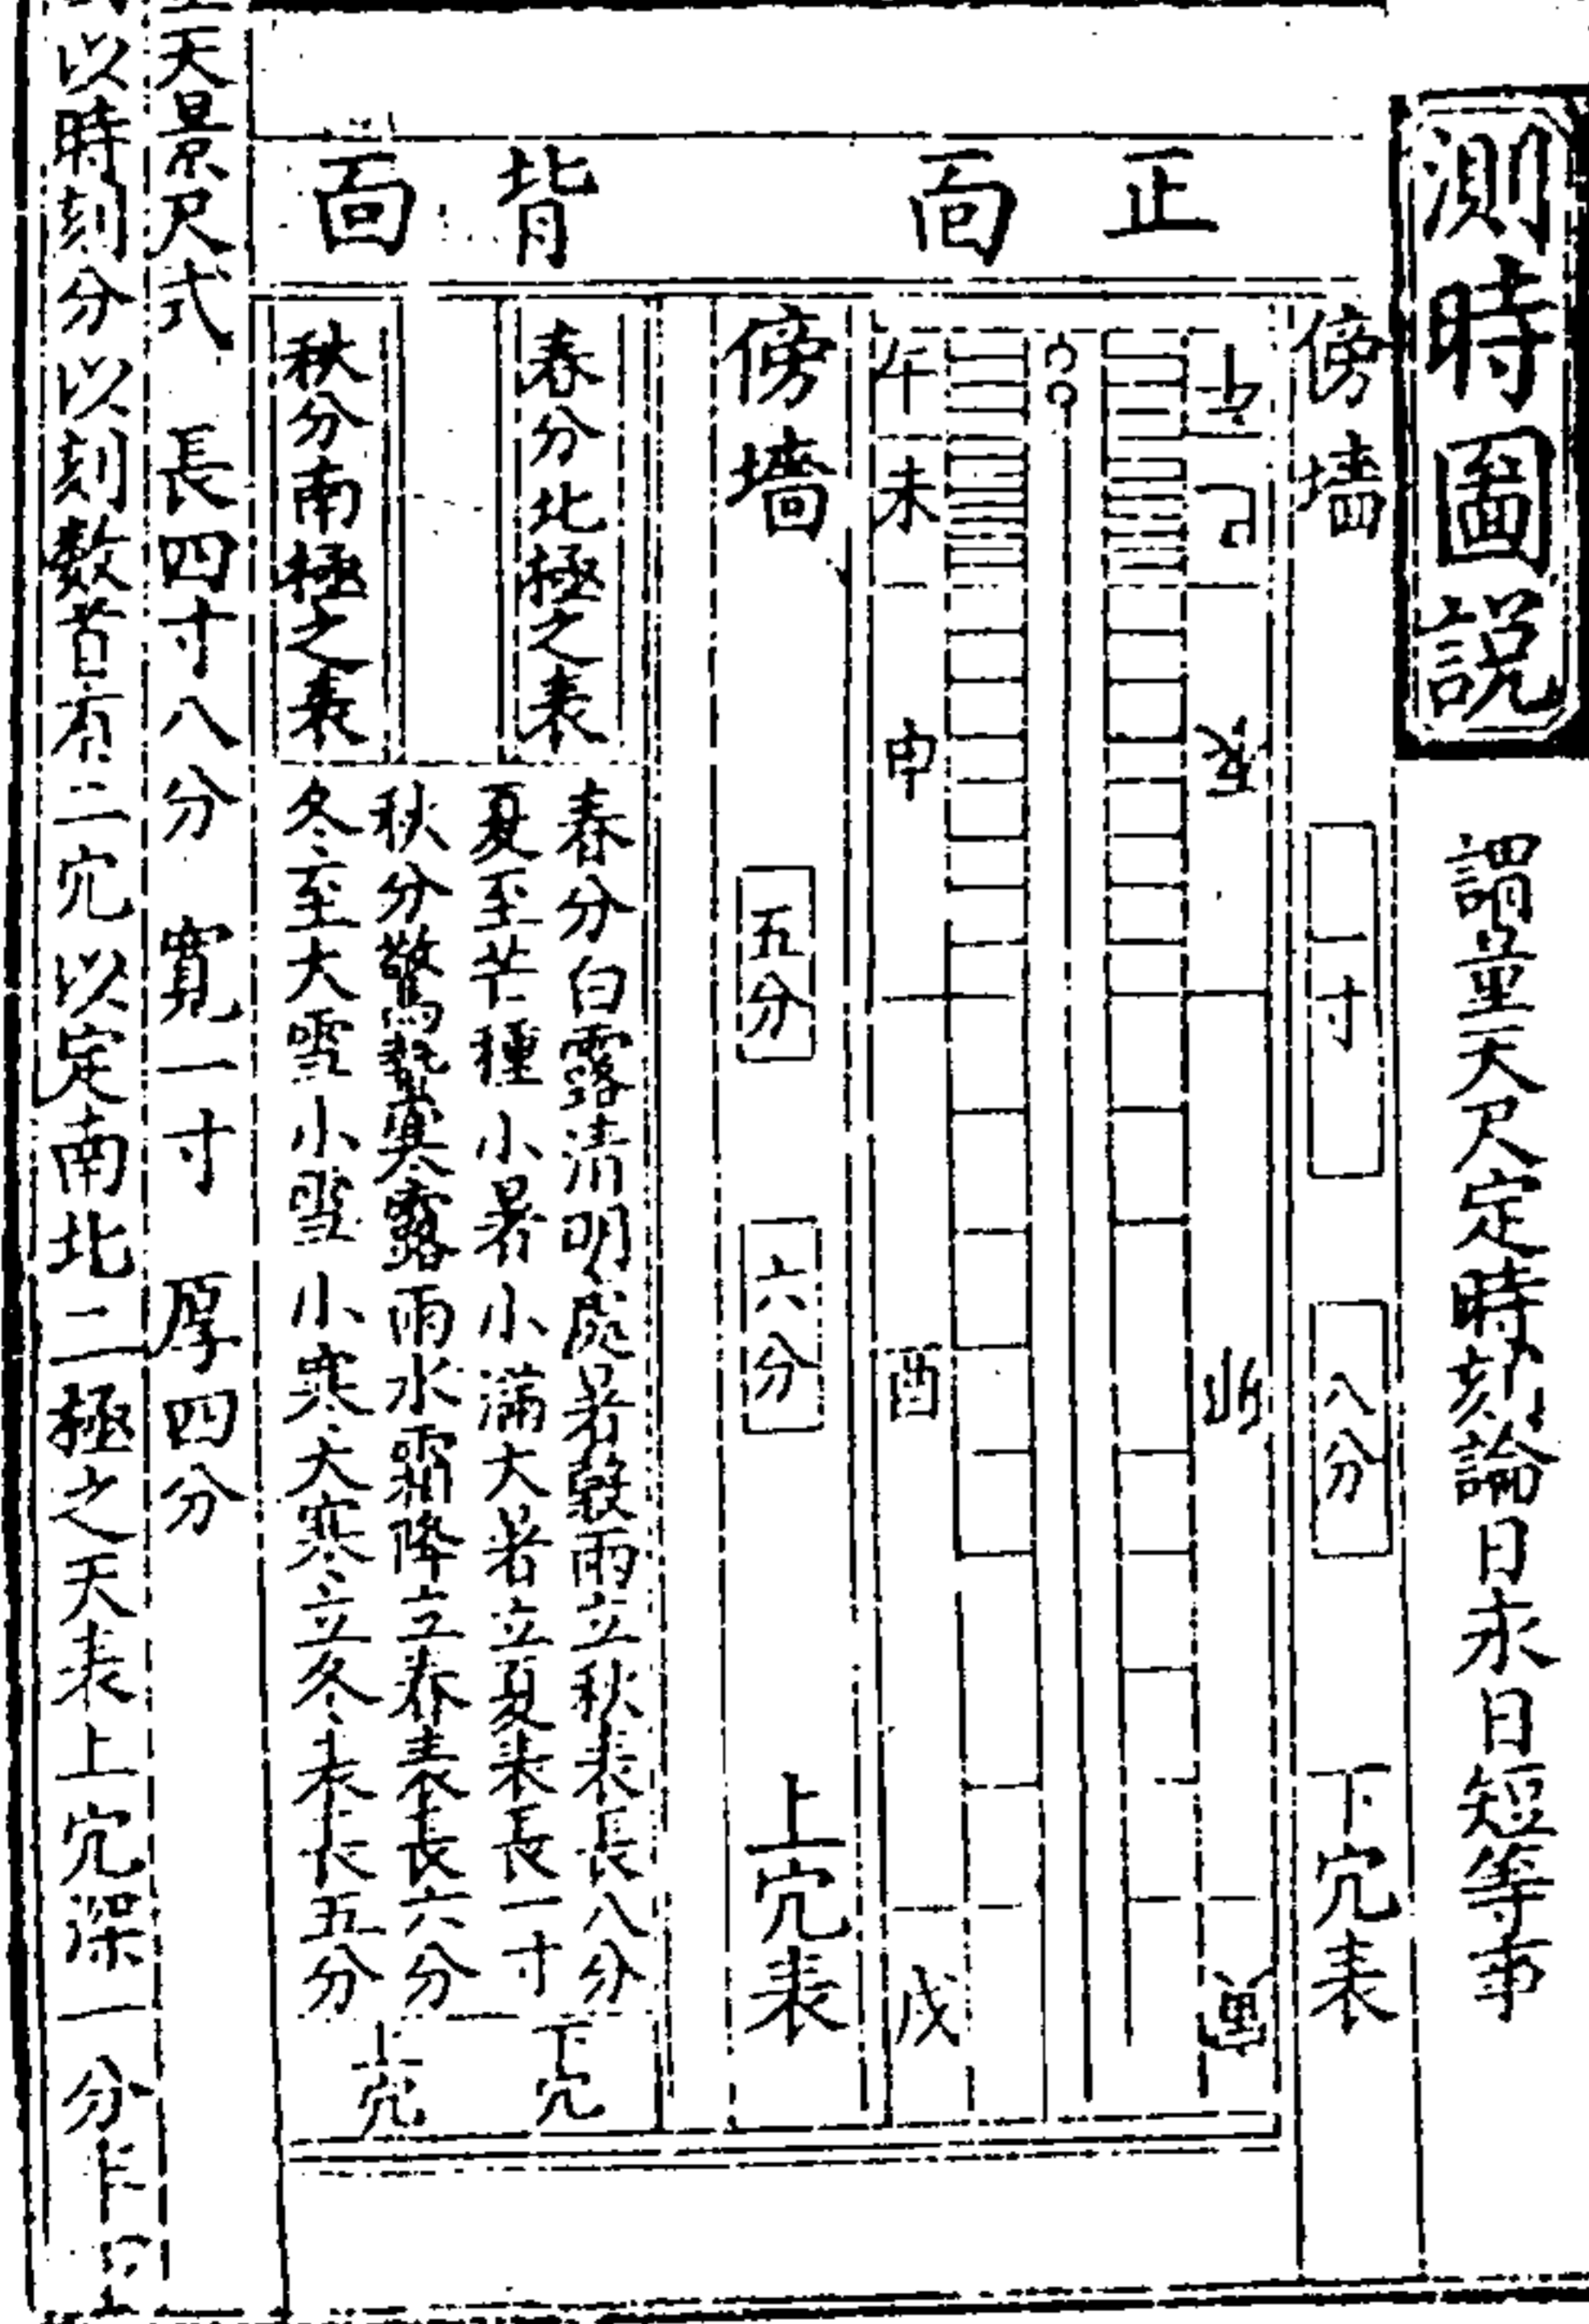 測時圖說
謂量天尺定時刻論日永日短等事
正面
背面
傍墻
一寸
八分
下穴表
午
未
申
酉
戌
午
巳
辰
卯
寅
傍墻
五分
六分
上穴表
春分北極之表
秋分南極之表
春分白露清明處暑穀雨立秋表長八分
夏至芒種小暑小滿大暑立夏表長一寸
秋分驚蟄寒露雨水霜降立春表長六分
冬至大雪小雪小寒大寒立冬表長五分
下穴
上穴
天景尺式 長四寸八分 寬一寸 厚四分
以時刻分以刻數首有二穴以定南北二極之天表上穴深一分